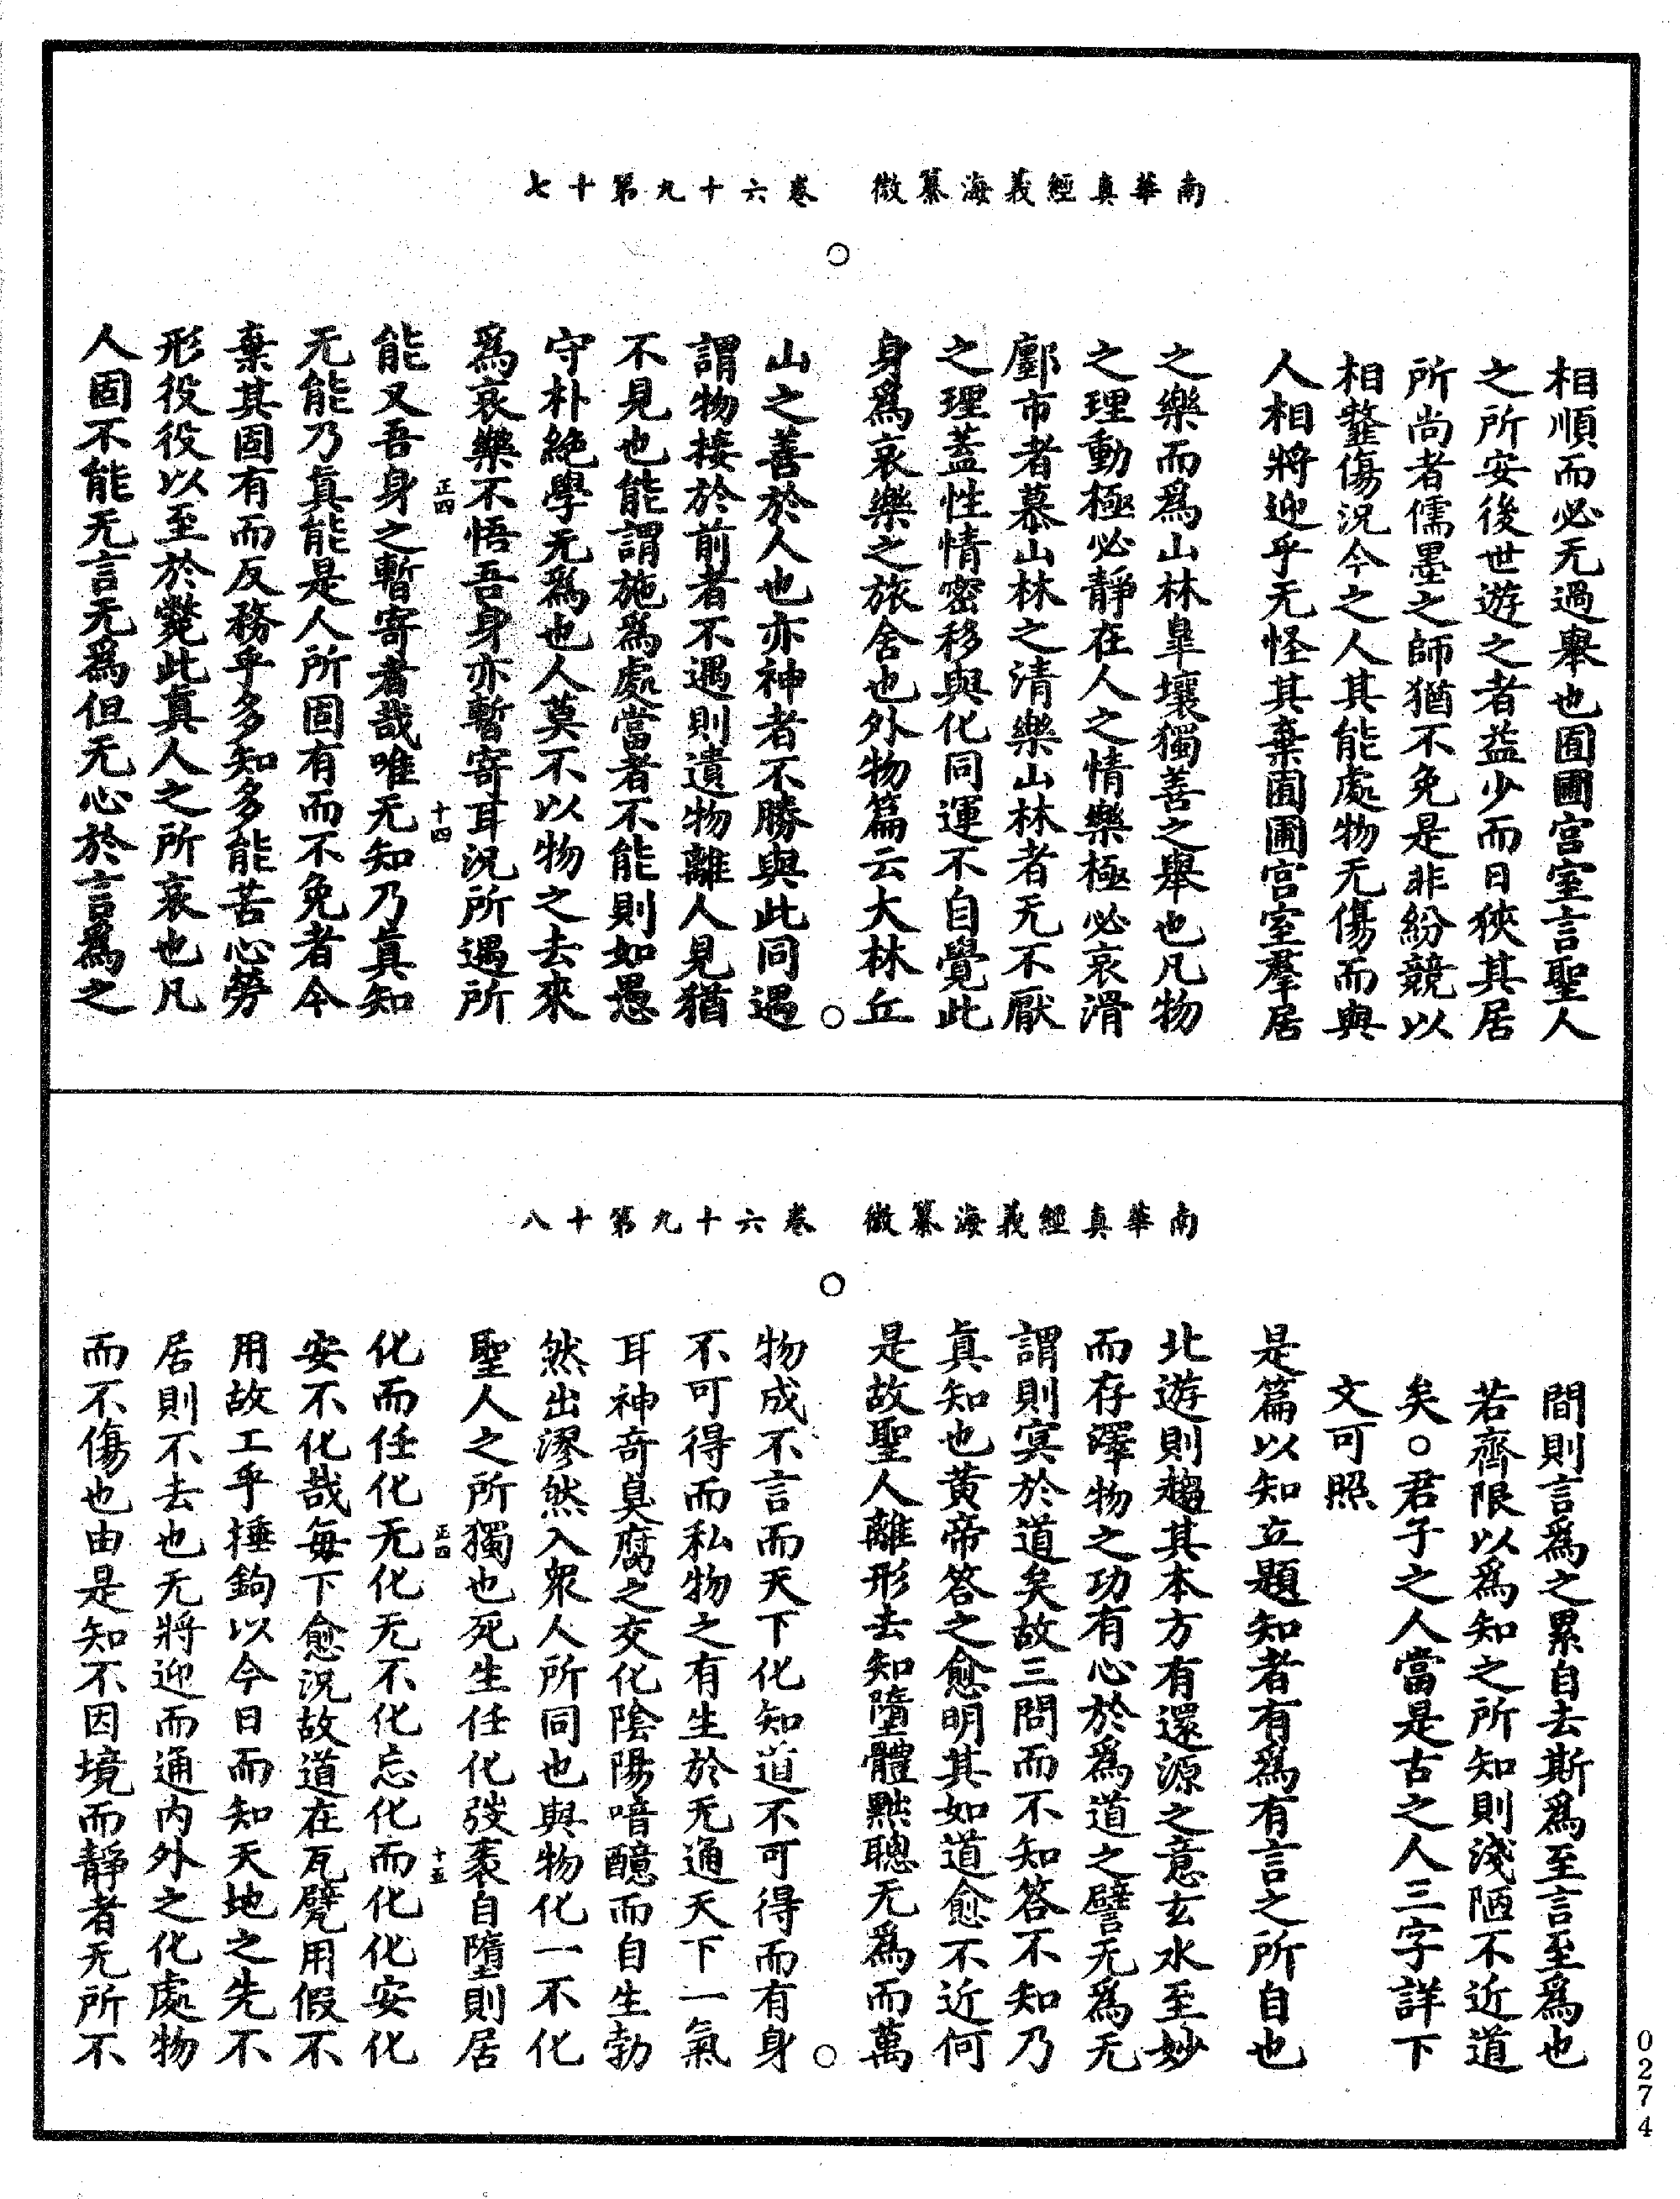 南華真經義海纂微　卷六十九第十七
相順而必无過舉也囿圃宮室言聖人
之所安後世遊之者益少而日狹其居
所尚者儒墨之師猶不免是非紛競以
相𩐋傷況今之人其能處物无傷而與
人相將迎乎无怪其棄囿圃宮室羣居
之樂而爲山林皐壤獨善之舉也凡物
之理動極必靜在人之情樂極必哀滑
鄽市者慕山林之清樂山林者无不厭
之理蓋性情密移與化同運不自覺此
身爲哀樂之旅舍也外物篇云大林丘
山之善於人也亦神者不勝與此同遇
謂物接於前者不遇則遺物離人見猶
不見也能謂施爲處當者不能則如愚
守朴絶學无爲也人莫不以物之去來
爲哀樂不悟吾身亦暫寄耳況所遇所
能又吾身之暫寄者哉唯无知乃眞知
无能乃眞能是人所固有而不免者今
棄其固有而反務乎多知多能苦心勞
形役役以至於斃此眞人之所哀也凡
人固不能无言无爲但无心於言爲之
正四
十四
南華真經義海纂微　卷六十九第十八
間則言爲之累自去斯爲至言至爲也
若齊限以爲知之所知則淺陋不近道
矣○君子之人當是古之人三字詳下
文可照
是篇以知立題知者有爲有言之所自也
北遊則趨其本方有還源之意玄水至妙
而存澤物之功有心於爲道之譬无爲无
謂則寞於道矣故三問而不知答不知乃
眞知也黄帝答之愈明其如道愈不近何
是故聖人離形去知墮體黜聰无爲而萬
物成不言而天下化知道不可得而有身
不可得而私物之有生於无通天下一氣
耳神奇臭腐之交化陰陽喑醷而自生勃
然出漻然入衆人所同也與物化一不化
聖人之所獨也死生任化弢袠自墮則居
化而任化无化无不化忘化而化化安化
安不化哉每下愈況故道在瓦甓用假不
用故工乎捶鉤以今日而知天地之先不
居則不去也无將迎而通内外之化處物
而不傷也由是知不因境而靜者无所不
正四
十五
0274